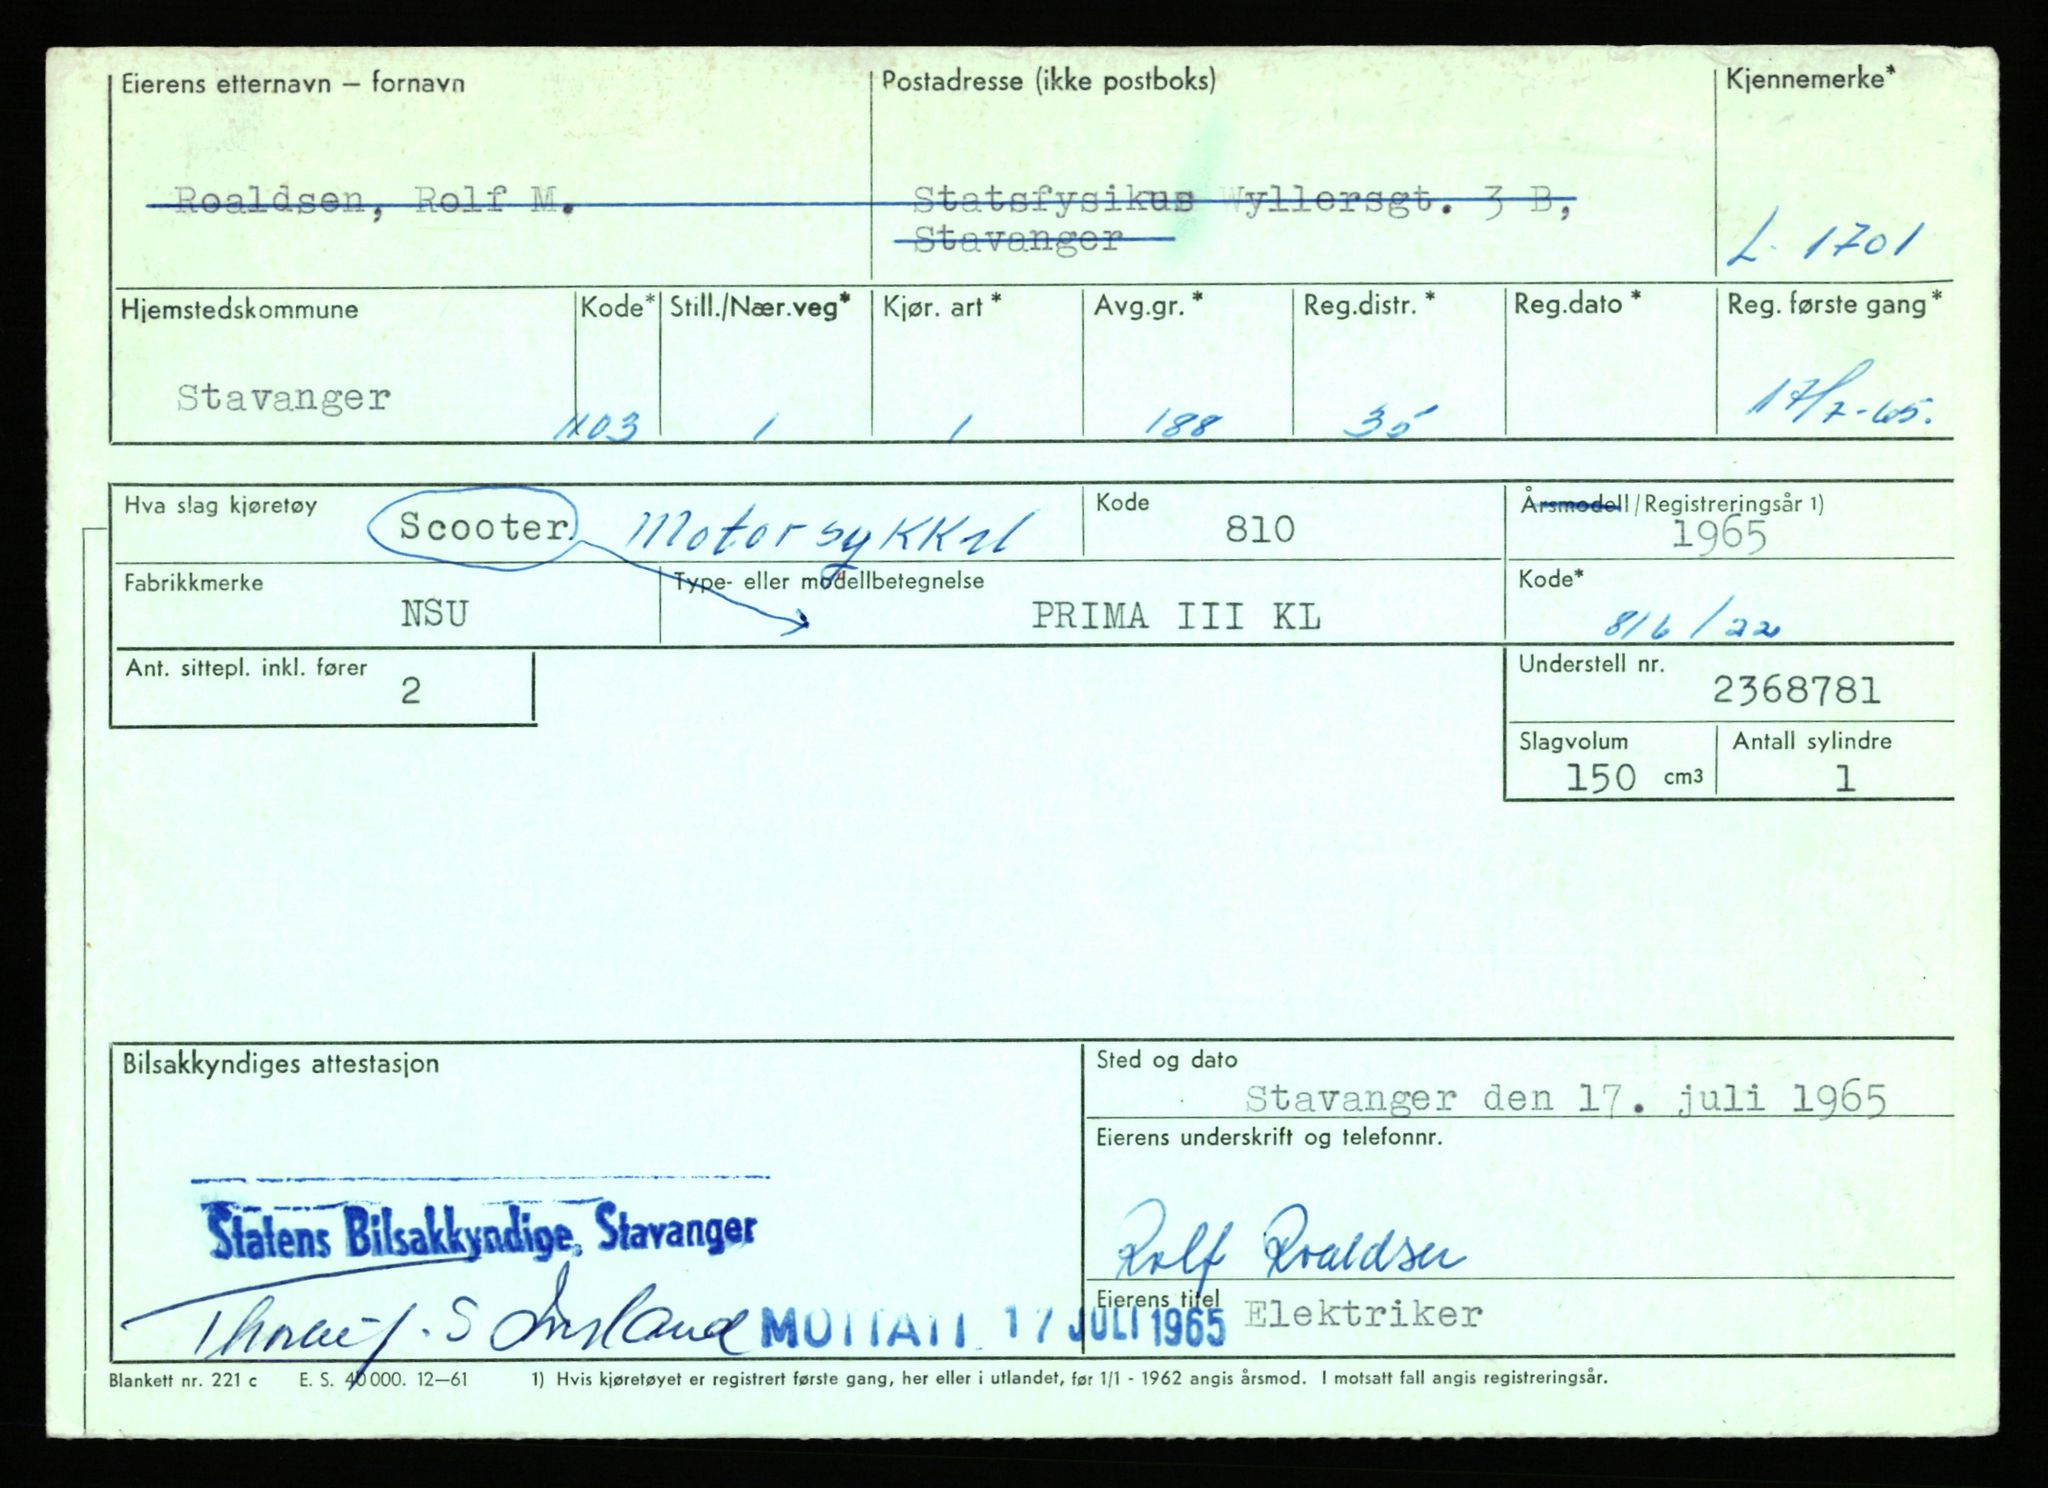 Eierens etternavn – fornavn
Postadresse (ikke postboks)
Kjennemerke*
Roaldsen, Rolf M.
Statsfysikus Wyllersgt. 3 B,
Stavanger
L- 1701
Hjemstedskommune
Kode*
Still./Nær.veg*
Kjør. art*
Avg.gr.*
Reg.distr.*
Reg.dato*
Reg. første gang*
Stavanger
1103
1
1
188
35
17/7-65.
Hva slag kjøretøy
Scooter
Motorsykkel
Kode
810
Årsmodell/Registreringsår 1)
1965
Fabrikkmerke
NSU
Type- eller modellbetegnelse
PRIMA III KL
Kode*
816/22
Ant. sittepl. inkl. fører
2
Understell nr.
2368781
Slagvolum
150 cm3
Antall sylindre
1
Bilsakkyndiges attestasjon
Statens Bilsakkyndige, Stavanger
MOTTATT 17 JULI 1965
Sted og dato
Stavanger den 17. juli 1965
Eierens underskrift og telefonnr.
Rolf Roaldsen
Eierens titel
Elektriker
Blankett nr. 221 c E. S. 40 000. 12—61 1) Hvis kjøretøyet er registrert første gang, her eller i utlandet, før 1/1 - 1962 angis årsmod. I motsatt fall angis registreringsår.